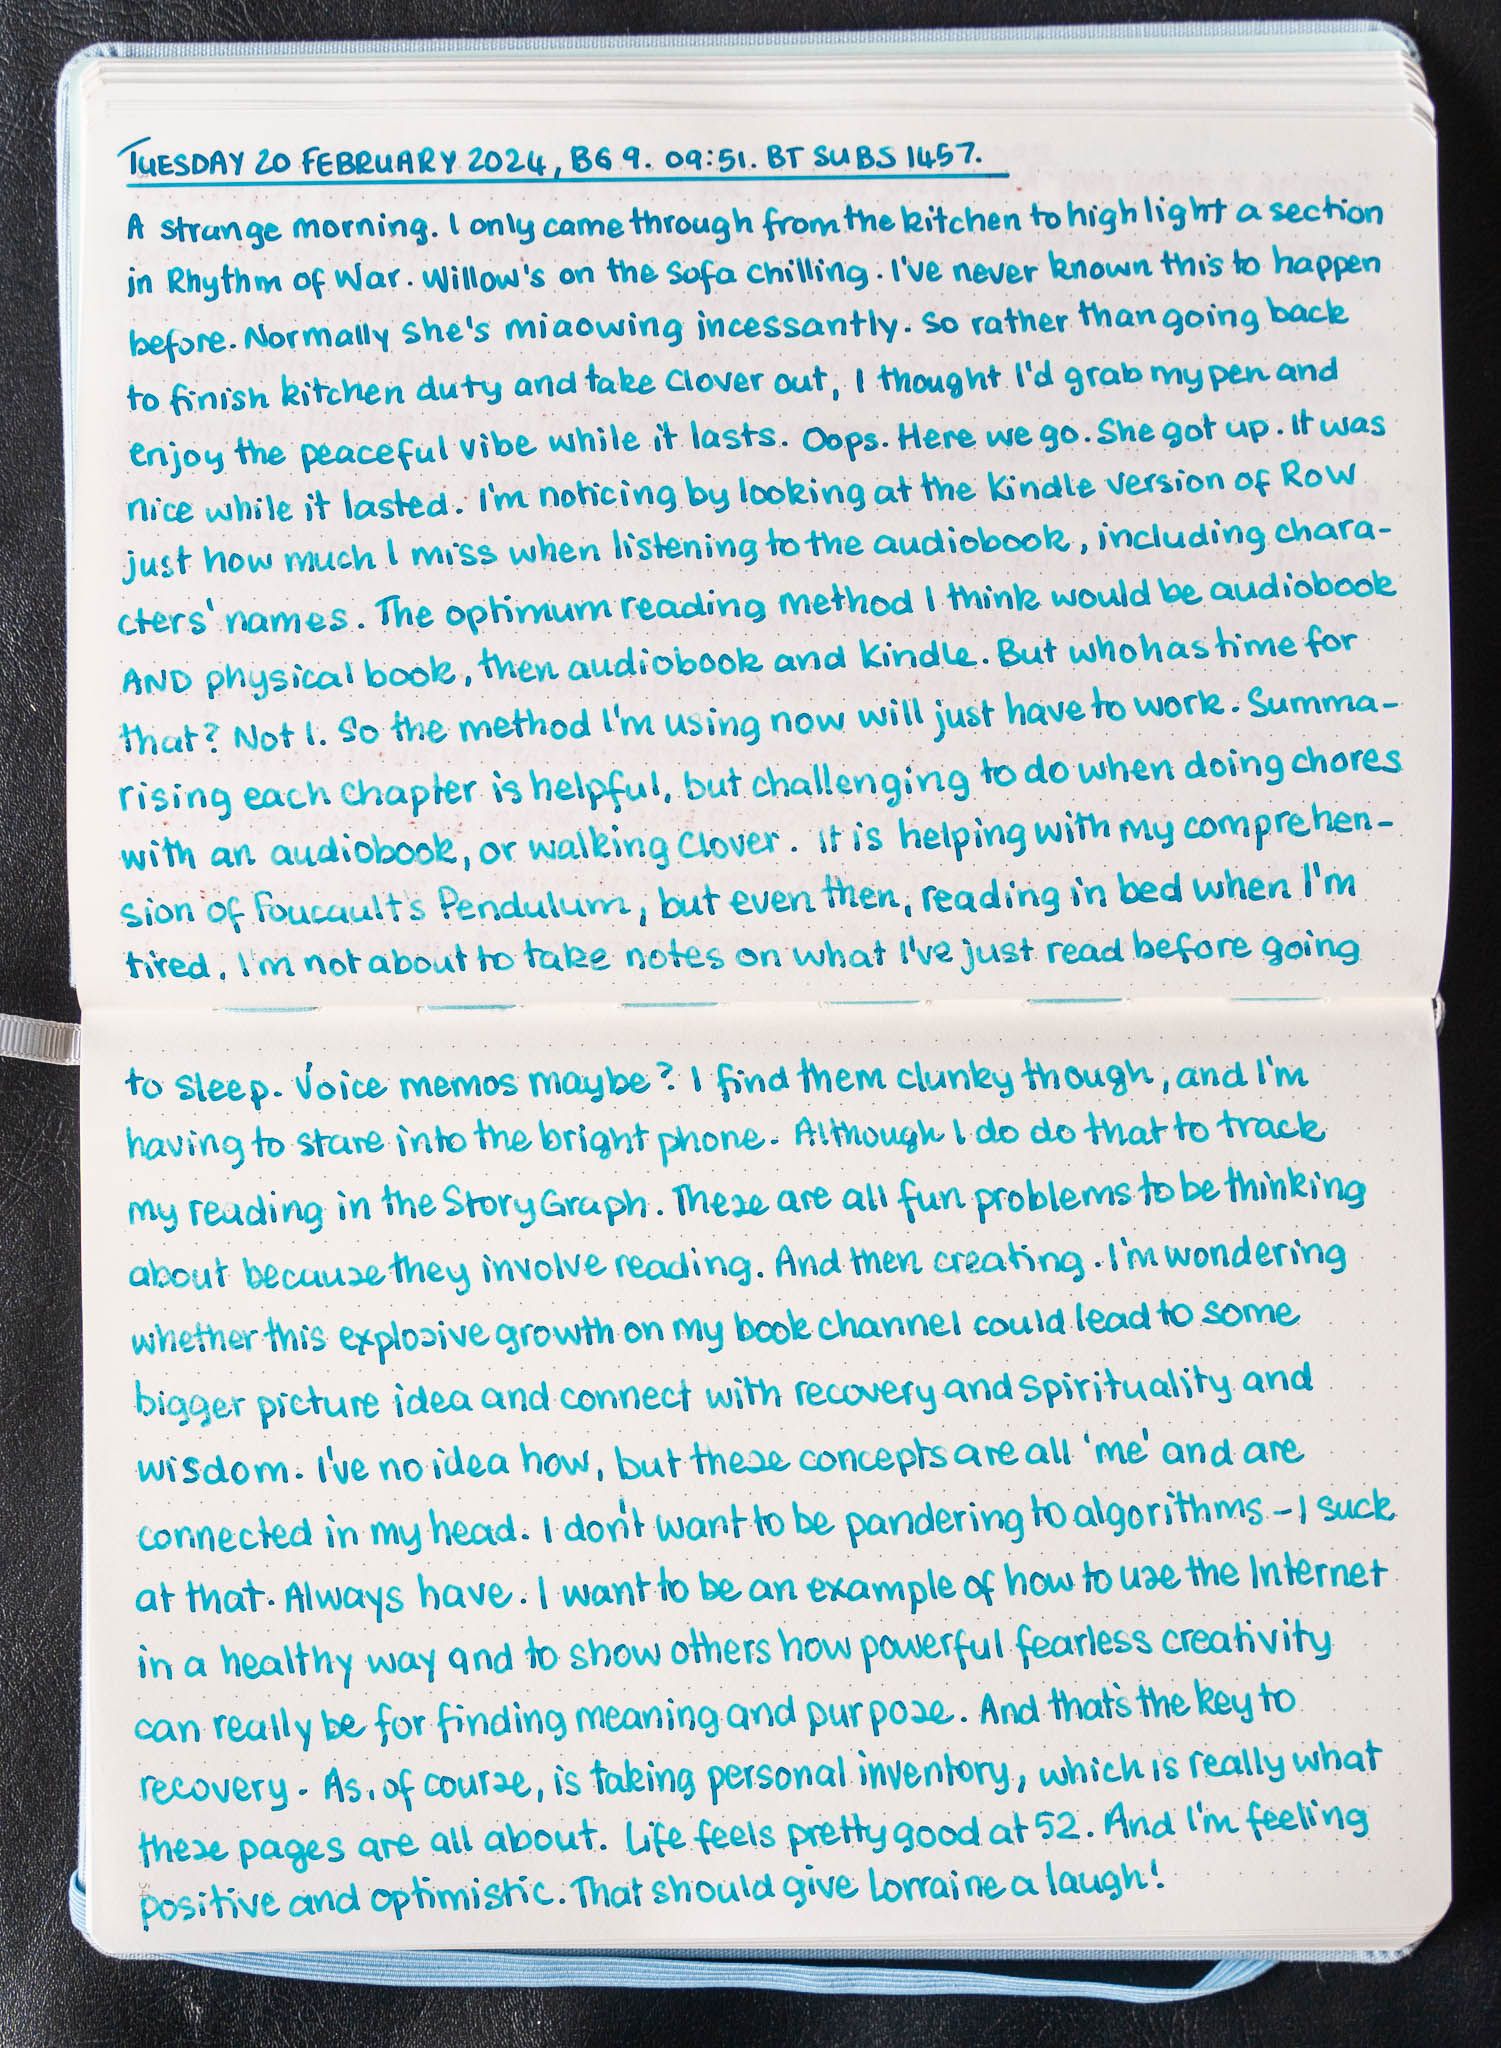 TUESDAY 20 FEBRUARY 2024, BG 9. 09:51. BT SUBS 1457.
A strange morning. I only came through from the kitchen to highlight a section
in Rhythm of War. Willow's on the sofa chilling. I've never known this to happen
before. Normally she's miaowing incessantly. So rather than going back
to finish kitchen duty and take Clover out, I thought I'd grab my pen and
enjoy the peaceful vibe while it lasts. Oops. Here we go. She got up. It was
nice while it lasted. I'm noticing by looking at the Kindle version of RoW
just how much I miss when listening to the audiobook, including chara-
cters' names. The optimum reading method I think would be audiobook
AND physical book, then audiobook and Kindle. But who has time for
that? Not I. So the method I'm using now will just have to work. Summa-
rising each chapter is helpful, but challenging to do when doing chores
with an audiobook, or walking Clover. It is helping with my comprehen-
sion of Foucault's Pendulum, but even then, reading in bed when I'm
tired. I'm not about to take notes on what I've just read before going
to sleep. Voice memos maybe? I find them clunky though, and I'm
having to stare into the bright phone. Although I do do that to track
my reading in the StoryGraph. These are all fun problems to be thinking
about because they involve reading. And then creating. I'm wondering
whether this explosive growth on my book channel could lead to some
bigger picture idea and connect with recovery and spirituality and
wisdom. I've no idea how, but these concepts are all 'me' and are
connected in my head. I don't want to be pandering to algorithms – I suck
at that. Always have. I want to be an example of how to use the Internet
in a healthy way and to show others how powerful fearless creativity
can really be for finding meaning and purpose. And that's the key to
recovery. As, of course, is taking personal inventory, which is really what
these pages are all about. Life feels pretty good at 52. And I'm feeling
positive and optimistic. That should give Lorraine a laugh!